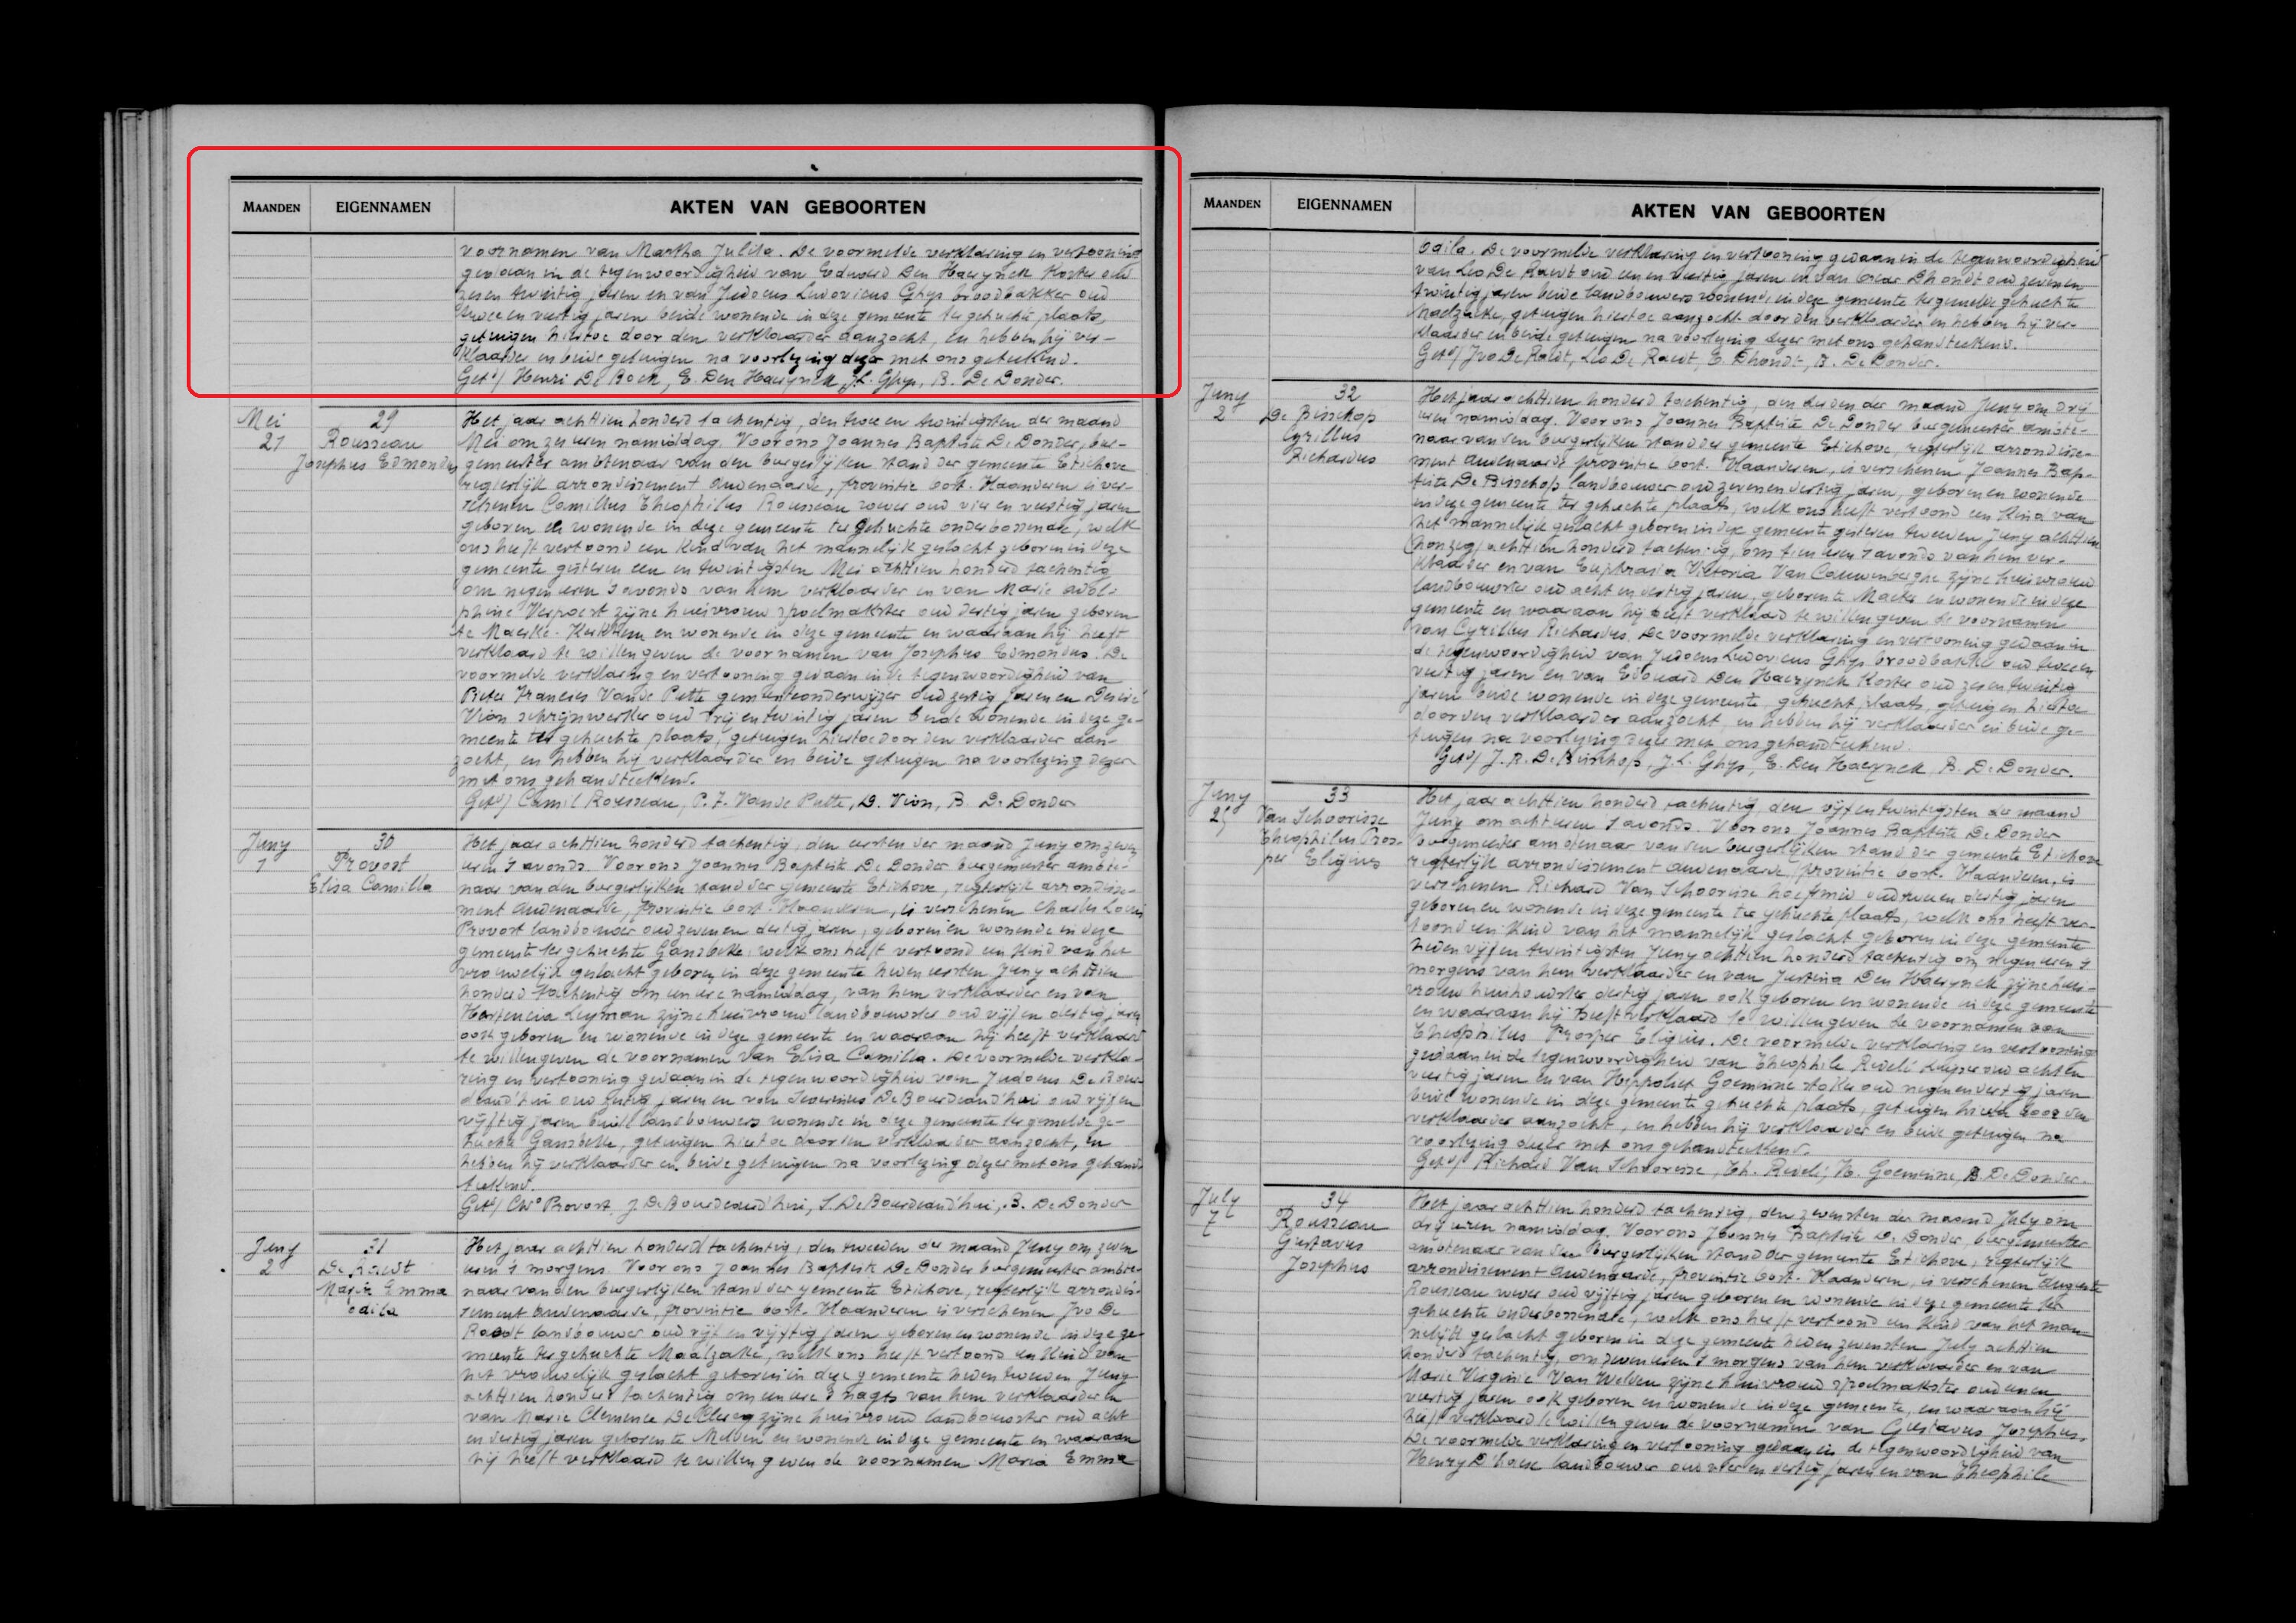 MAANDEN EIGENNAMEN AKTEN VAN GEBOORTEN
voornamen van Martha Julita. De voormelde verklaring en vertooning
gedaan in de tegenwoordigheid van Eduard Den Haerynck Koster oud
zes en twintig jaren en van Judocus Ludovicus Ghys broodbakker oud
twee en veertig jaren beide wonende in deze gemeente ter gehuchte plaats,
getuigen hiertoe door den verklaarder aanzocht, en hebben hij ver-
klaarder en beide getuigen na voorlezing dezer met ons geteekend.
Getd/ Henri De Bock, E. Den Haerynck, J.L. Ghys, B. De Donder.
Mei 29 Het jaar achttien honderd tachentig, den twee en twintigsten der maand
21 Rousseau Mei om zes uren namiddag. Voor ons Joannes Baptiste De Donder, bur-
Josephus Edmondus gemeester ambtenaar van den burgerlijken stand der gemeente Etichove
regterlijk arrondissement Audenaarde, provintie Oost. Vlaanderen is ver-
schenen Camillus Theophilus Rousseau wever oud vier en veertig jaren
geboren en wonende in deze gemeente ter gehuchte onderbossenake, welk
ons heeft vertoond een Kind van het mannelijk geslacht geboren in deze
gemeente gisteren een en twintigsten Mei achttien honderd tachentig
om negen uren 's avonds van hem verklaarder en van Marie Adol-
phine Verpoest zijne huisvrouw spoelmakster oud dertig jaren geboren
te Maerke-Kerkhem en wonende in deze gemeente en waaraan hij heeft
verklaard te willen geven de voornamen van Josephus Edmondus. De
voormelde verklaring en vertooning gedaan in de tegenwoordigheid van
Pieter Francies Vande Putte gemeenteonderwijzer oud zestig jaren en Desiré
Vion schrijnwerker oud drij en twintig jaren beide wonende in deze ge-
meente ter gehuchte plaats, getuigen hiertoe door den verklaarder aan-
zocht, en hebben hij verklaarder en beide getuigen na voorlezing dezer
met ons gehandteekend.
Getd/ Camil Rousseau, P. F. Vande Putte, D. Vion, B. De Donder
Juny 30 Het jaar achttien honderd tachentig, den eersten der maand Juny om zeven
1 Provost uren 's avonds. Voor ons Joannes Baptiste De Donder burgemeester ambte-
Elisa Camilla naar van den burgerlijken stand der gemeente Etichove, regterlijk arrondisse-
ment Audenaarde, provintie Oost. Vlaanderen, is verschenen Charles Louis
Provost landbouwer oud zeven en dertig jaren, geboren en wonende in deze
gemeente ter gehuchte Gansbeke, welk ons heeft vertoond een Kind van het
vrouwelijk geslacht geboren in deze gemeente heden eersten Juny achttien
honderd tachentig om een ure namiddag, van hem verklaarder en van
Hortencia Leyman zijne huisvrouw landbouwster oud vijf en dertig jaren
ook geboren en wonende in deze gemeente en waaraan hij heeft verklaard
te willen geven de voornamen van Elisa Camilla. De voormelde verkla-
ring en vertooning gedaan in de tegenwoordigheid van Judocus De Bour-
deaud'hui oud zestig jaren en van Severinus De Bourdeaud'hui oud vijf en
vijftig jaren beide landbouwers wonende in deze gemeente ter gemelde ge-
huchte Gansbeke, getuigen hiertoe door den verklaarder aanzocht, en
hebben hij verklaarder en beide getuigen na voorlezing dezer met ons gehand-
teekend.
Getd/ Chs Provost, J. De Bourdeaud'hui, S. De Bourdeaud'hui, B. De Donder
Juny 31 Het jaar achttien honderd tachentig, den tweeden der maand Juny om zeven
2 De Raedt uren 's morgens. Voor ons Joannes Baptiste De Donder burgemeester ambte-
Maria Emma naar van den burgerlijken stand der gemeente Etichove, regterlijk arrondis-
Odila sement Audenaarde, provintie Oost. Vlaanderen is verschenen Ivo De
Raedt landbouwer oud vijf en vijftig jaren geboren en wonende in deze ge-
meente ter gehuchte Maalzake, welk ons heeft vertoond een Kind van
het vrouwelijk geslacht geboren in deze gemeente heden tweeden Juny
achttien honderd tachentig om een ure 's nagts van hem verklaarder en
van Marie Clemence De Clercq zijne huisvrouw landbouwster oud acht
en dertig jaren geboren te Melden en wonende in deze gemeente en waaraan
hij heeft verklaard te willen geven de voornamen Maria Emma
MAANDEN EIGENNAMEN AKTEN VAN GEBOORTEN
Odila. De voormelde verklaring en vertooning gedaan in de tegenwoordigheid
van Leo De Raedt oud een en veertig jaren en van Cesar Dhondt oud zeven en
twintig jaren beide landbouwers wonende in deze gemeente ter gemelde gehuchte
Maelzake, getuigen hiertoe aanzocht door den verklaarder en hebben hij ver-
klaarder en beide getuigen na voorlezing dezer met ons gehandteekend.
Getd/ Ivo De Raedt, Leo De Raedt, C. Dhondt, B. De Donder.
Juny 32 Het jaar achttien honderd tachentig, den derden der maand Juny om drij
2 De Bisschop uren namiddag. Voor ons Joannes Baptiste De Donder burgemeester ambte-
Cyrillus naar van den burgerlijken stand der gemeente Etichove, regterlijk arrondisse-
Richardus ment Audenaarde provintie Oost. Vlaanderen, is verschenen Joannes Bap-
tiste De Bisschop landbouwer oud zeven en dertig jaren, geboren en wonende
in deze gemeente ter gehuchte plaats, welk ons heeft vertoond een Kind van
het mannelijk geslacht geboren in deze gemeente gisteren tweeden Juny achttien
honderd achttien honderd tachentig, om tien uren 's avonds van hem ver-
klaarder en van Euphrasia Victoria Van Cauwenberghe zijne huisvrouw
landbouwster oud acht en dertig jaren, geboren te Maeter en wonende in deze
gemeente en waaraan hij heeft verklaard te willen geven de voornamen
van Cyrillus Richardus. De voormelde verklaring en vertooning gedaan in
de tegenwoordigheid van Judocus Ludovicus Ghys broodbakker oud twee en
veertig jaren en van Eduard Den Haerynck Koster oud zes en twintig
jaren beide wonende in deze gemeente, gehucht plaats, getuigen hiertoe
door den verklaarder aanzocht, en hebben hij verklaarder en beide ge-
tuigen na voorlezing dezer met ons gehandteekend.
Getd/ J. B. De Bisschop, J. L. Ghys, E. Den Haerynck, B. De Donder.
Juny 33 Het jaar achttien honderd tachentig, den vijf en twintigsten der maand
25 Van Schoorisse Juny om acht uren 's avonds. Voor ons Joannes Baptiste De Donder
Theophilus Pros- burgemeester ambtenaar van den burgerlijken stand der gemeente Etichove
per Eligius regterlijk arrondissement Audenaarde, provintie Oost. Vlaanderen, is
verschenen Richard Van Schoorisse hoefsmid oud twee en dertig jaren
geboren en wonende in deze gemeente ter gehuchte plaats, welk ons heeft ver-
toond een Kind van het mannelijk geslacht geboren in deze gemeente
heden vijf en twintigsten Juny achttien honderd tachentig om negen uren 's
morgens van hem verklaarder en van Justina Den Haerynck zijne huis-
vrouw huishoudster dertig jaren ook geboren en wonende in deze gemeente
en waaraan hij heeft verklaard te willen geven de voornamen van
Theophilus Prosper Eligius. De voormelde verklaring en vertooning
gedaan in de tegenwoordigheid van Theophile Redelé oud acht en
veertig jaren en van Hippoliet Goeminne oud negen en veertig jaren
beide wonende in deze gemeente gehuchte plaats, getuigen hiertoe door den
verklaarder aanzocht, en hebben hij verklaarder en beide getuigen na
voorlezing dezer met ons gehandteekend.
Getd/ Richard Van Schoorisse, Th. Redelé, H. Goeminne, B. De Donder.
July 34 Het jaar achttien honderd tachentig, den zevensten der maand July om
7 Rousseau drij uren namiddag. Voor ons Joannes Baptiste De Donder, burgemeester
Gustavus ambtenaar van den burgerlijken stand der gemeente Etichove, regterlijk
Josephus arrondissement Audenaarde, provintie Oost. Vlaanderen, is verschenen Auguste
Rousseau wever oud vijftig jaren geboren en wonende in deze gemeente ter
gehuchte onderbossenake, welk ons heeft vertoond een Kind van het man-
nelijk geslacht geboren in deze gemeente heden zevensten July achttien
honderd tachentig, om zeven uren 's morgens van hem verklaarder en van
Marie Virginie Van Welden zijne huisvrouw spoelmakster oud eenen
veertig jaren ook geboren en wonende in deze gemeente, en waaraan hij
heeft verklaard te willen geven de voornamen van Gustavus Josephus.
De voormelde verklaring en vertooning gedaan in de tegenwoordigheid van
Henry D'hoese landbouwer oud vier en dertig jaren en van Theophile